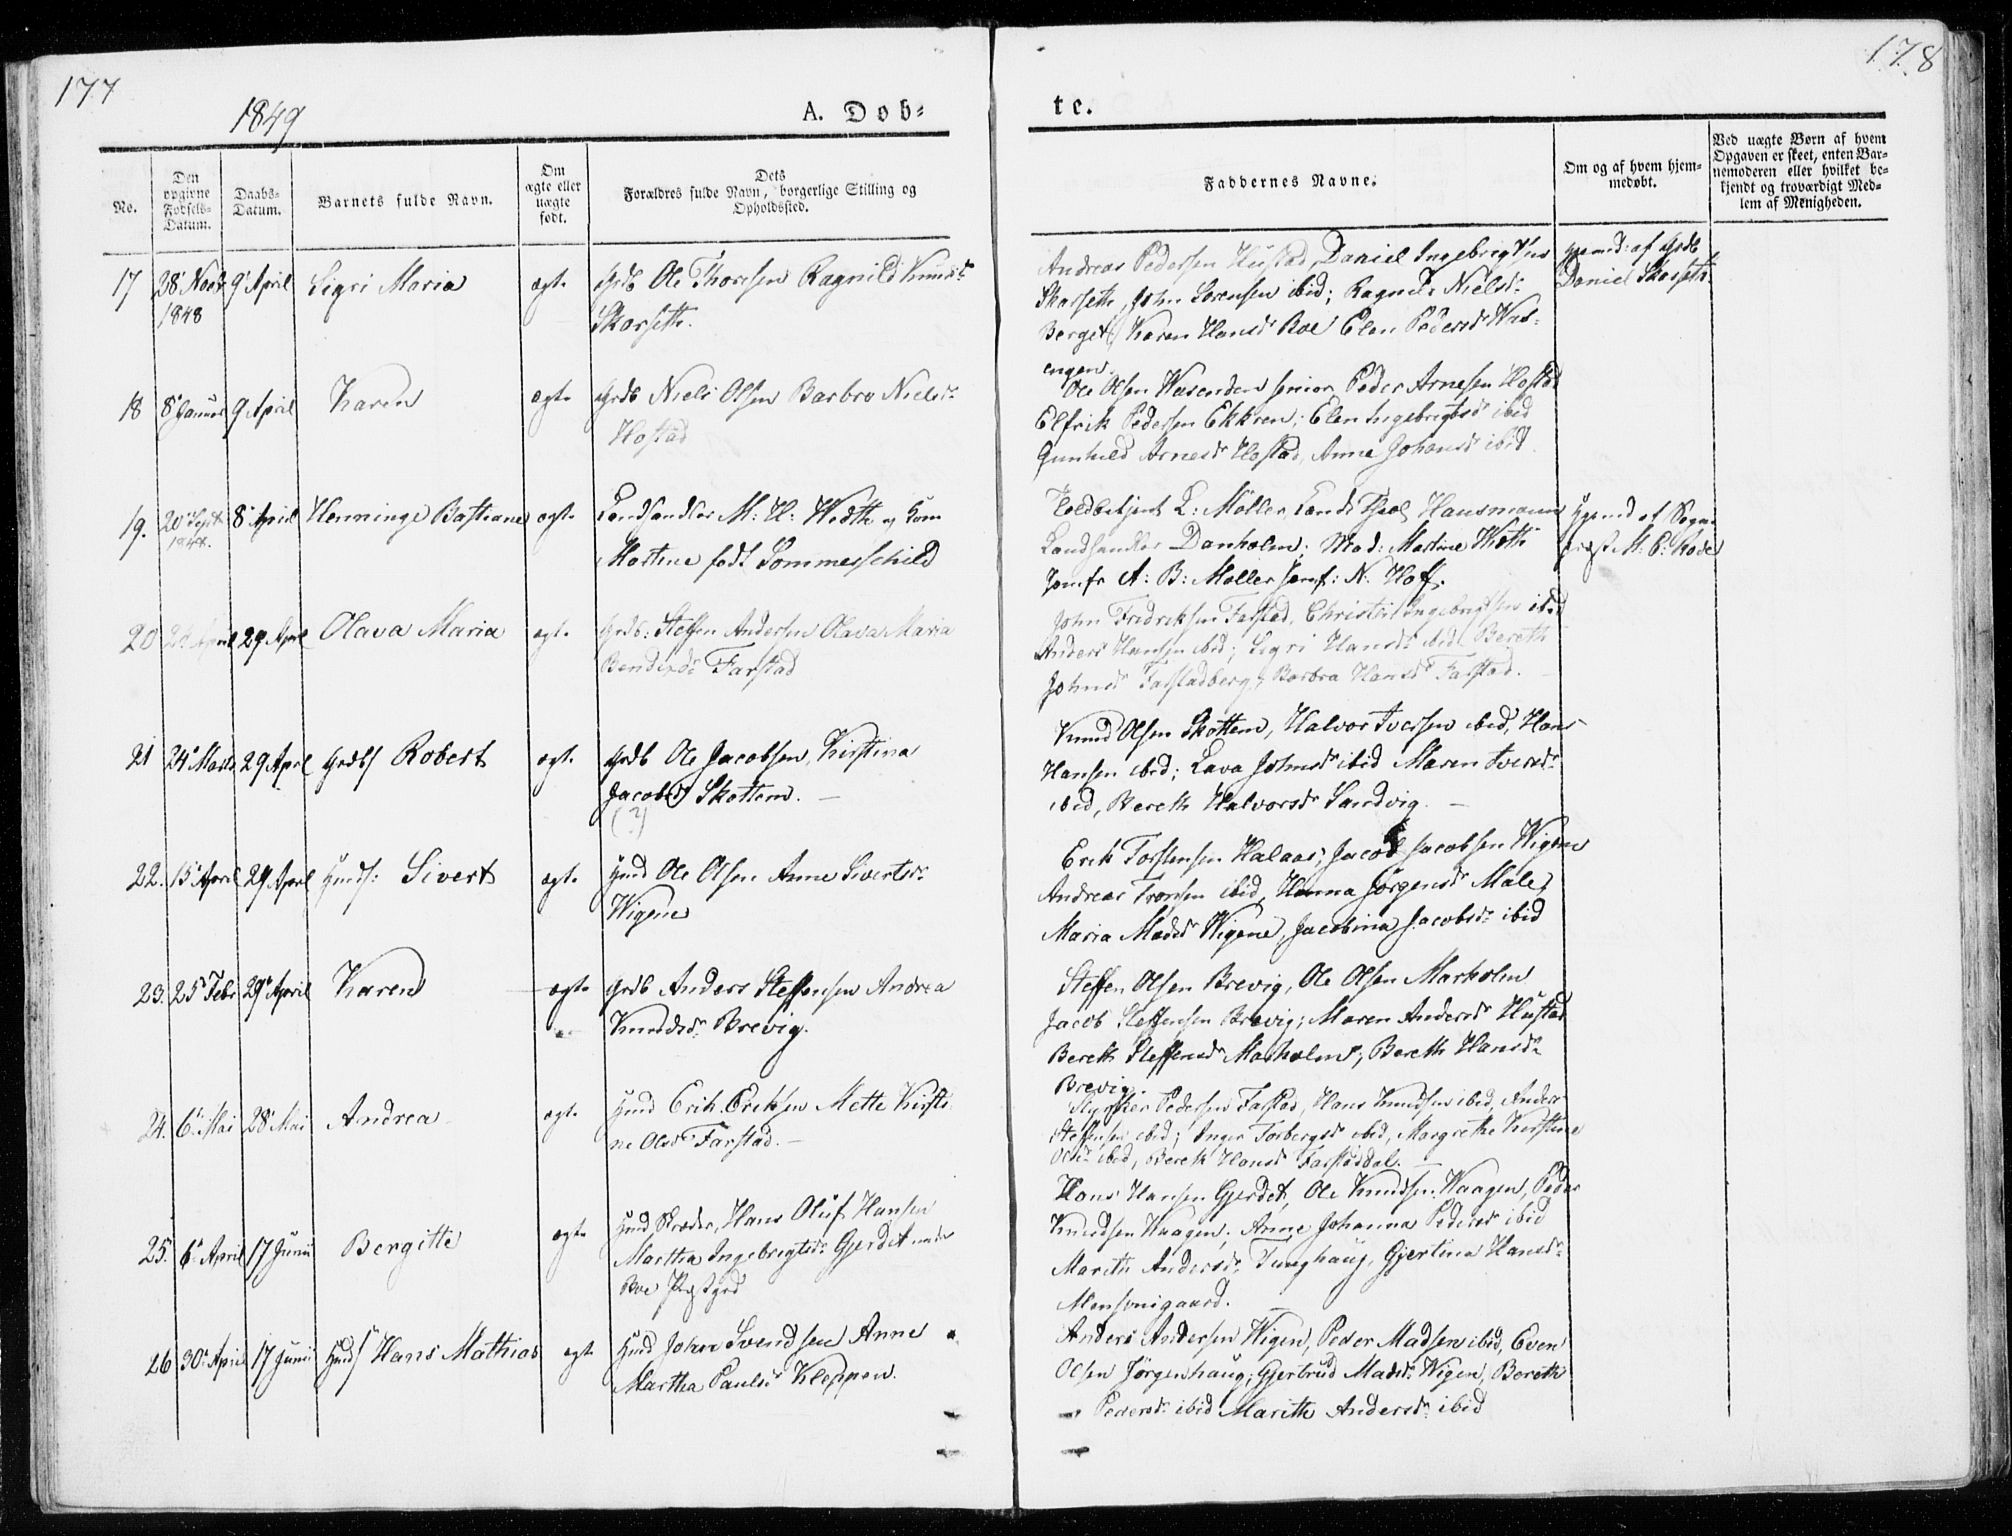 177
178
1849
A. Døb-
te.
No.
Den opgivne Fødsels-Datum.
Daabs-Datum.
Barnets fulde Navn.
Om ægte eller uægte født.
Dets Forældres fulde Navn, borgerlige Stilling og Opholdssted.
Faddernes Navne.
Om og af hvem hjemmedøbt.
Ved uægte Børn af hvem Opgaven er skeet, enten Barnemoderen eller hvilket bekjendt og troværdigt Medlem af Menigheden.
17 28' Novbr 1848 9' April Sigri Maria ægte Grdb Ole Thoresen Ragnild Knudsdr
Skarseth.
Andreas Pedersen Hustad, Daniel Ingebrigtsen
Skarseth, John Sorensen ibid; Ragnild Nielsdr
Berget, Karen Hansdr Boe Elen Pedersdr Was-
engen.
Hjemd: af Grdb
Daniel Skarseth.
18 8' Januar 9 April Karen ægte Grdb Niels Olsen Barbro Nielsdr
Hostad
Ole Olsen Wasenden senior, Peder Arnesen Hostad
Elfrik Pedersen Ekkren; Elen Ingebrigtsdr ibid
Gunhild Arnesdr Hostad, Anne Johansdr ibid.
19. 20' Sept 1848. 8' April Henninge Bastiane ægte Landhandler M: H: Wedth og Kone
Martine født Sommerschild
Toldbetjent L: Møller Cand: Theol Hausmann
Landhandler Danholm; Mad: Martine Weth
Jomfr A: B: Møller Jomf: N. Hoff.
Hjemd af Sogne
præst M: P: Rode
20 29 April Olava Maria ægte Grdb: Steffen Andersen Olava Maria
Bendixdr Farstad
John Fredriksen Farstad, Christen Ingebrigtsen ibid
Anders Hansen ibid; Sigri Hansdr ibid Bereth
Johnsdr Farstadberg, Barbra Hansdr Farstad.
21 24' Marts 29 April Grdbs Robert ægte Grdb Ole Jacobsen, Kirstina
Jacobsd Skottem.
(?)
Knud Olsen Skottem, Halvor Iversen ibid, Hans
Hansen ibid; Lava Johnsdr ibid Maren Iversdr
ibid, Bereth Halvorsdr Sandvig.
22. 15' April 29 April Hmds: Sivert ægte Hmd Ole Olsen Anne Sivertsdr
Wigene
Erik Torstensen Halaas, Jacob Jacobsen Wigene
Andreas Tronsen ibid, Hanna Jørgensdr Male,
Maria Madsdr Wigene, Jacobina Jacobsdr ibid
23. 25' Febr 29' April Karen ægte Grdb Anders Steffensen Andrea
Knudsdr Brevig.
Steffen Olsen Brevig, Ole Olsen Markolm
Jacob Steffensen Brevig; Maren Andersdr Hustad
Bereth Steffensdr Markolm; Bereth Hansdr
Brevig.
24. 6' Mai 28' Mai Andrea ægte Hmd Erik Eriksen Mette Kirsti
ne Olsdr Farstad.
Pedersen Farstad, Hans Knudsen ibid, Anders
Steffensen ibid; Inger Torbergsdr ibid, Margrethe Kirstine
Olsdr ibid, Bereth Hansdr Farstaddal.
25. 6' April 17 Junii Bergitte ægte Hmd Skræder, Hans Oluf Hansen
Martha Ingebrigtsdr Gjerdet under
Boe Præstgrd
Hans Hansen Gjerdet, Ole Knudsen Waagen, Peder
Knudsen Waagen; Anne Johanna Pedersdr ibid
Mareth Andersdr Tunghaug, Gjertina Hansdr
26 30' April 17 Junii Hmds Hans Mathias ægte Hmd John Svendsen Anne
Martha Paulsdr Kleppen.
Anders Andersen Wigen, Peder Madsen ibid, Even
Olsen Jørgenhaug; Gjertrud Madsdr Wigen, Bereth
Pedersdr ibid Marith Andersdr ibid